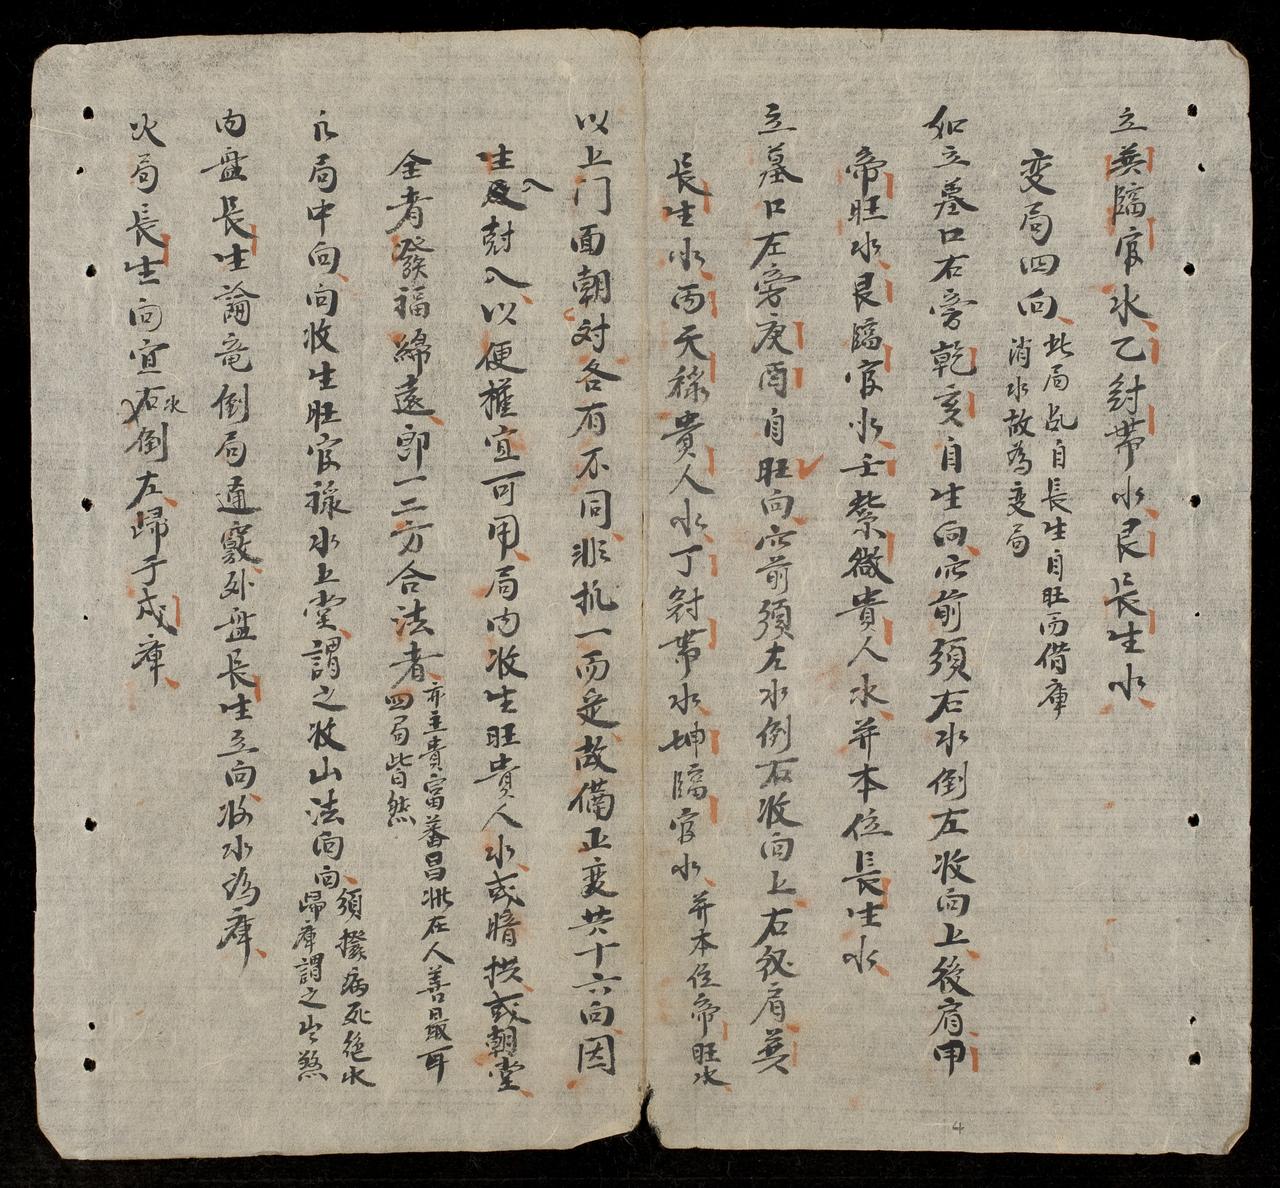 立巽臨官水乙針帯水艮長生水
变局四向
此局乩自長生自旺而借庫
消水故為变局
如立墓口右旁乾亥自生向穴前須右水倒左收向上後肩甲
帝旺水艮臨官水壬紫微貴人水并本位長生水
立墓口左旁庚酉自旺向穴前須左水倒右收向上右後肩巽
長生水丙天祿貴人水丁針帯水坤臨官水
并本位帝旺水
以上门面朝対各有不同非執一而定故備正变共十六向因
生入尅入以便權宜可用局内收生旺貴人水或暗拱或朝堂
全者發福綿遠即一二方合法者
亦主貴富蕃昌此在人善最耳
四局皆然
凡局中向向收生旺官祿水上堂謂之收山法向向
須撥病死絕水
歸庫謂之出煞
内盤長生論竜倒局通竅外盤長生立向收水歸庫
火局長生向宜右水倒左歸于戌庫
4